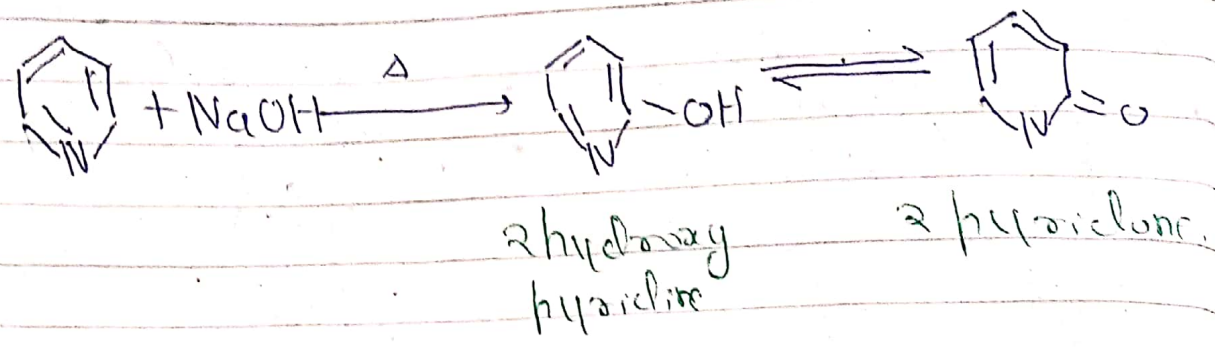 Δ
N + NaOH → N OH ⇌ N = O
2 hydroxy 2 pyridone.
pyridine